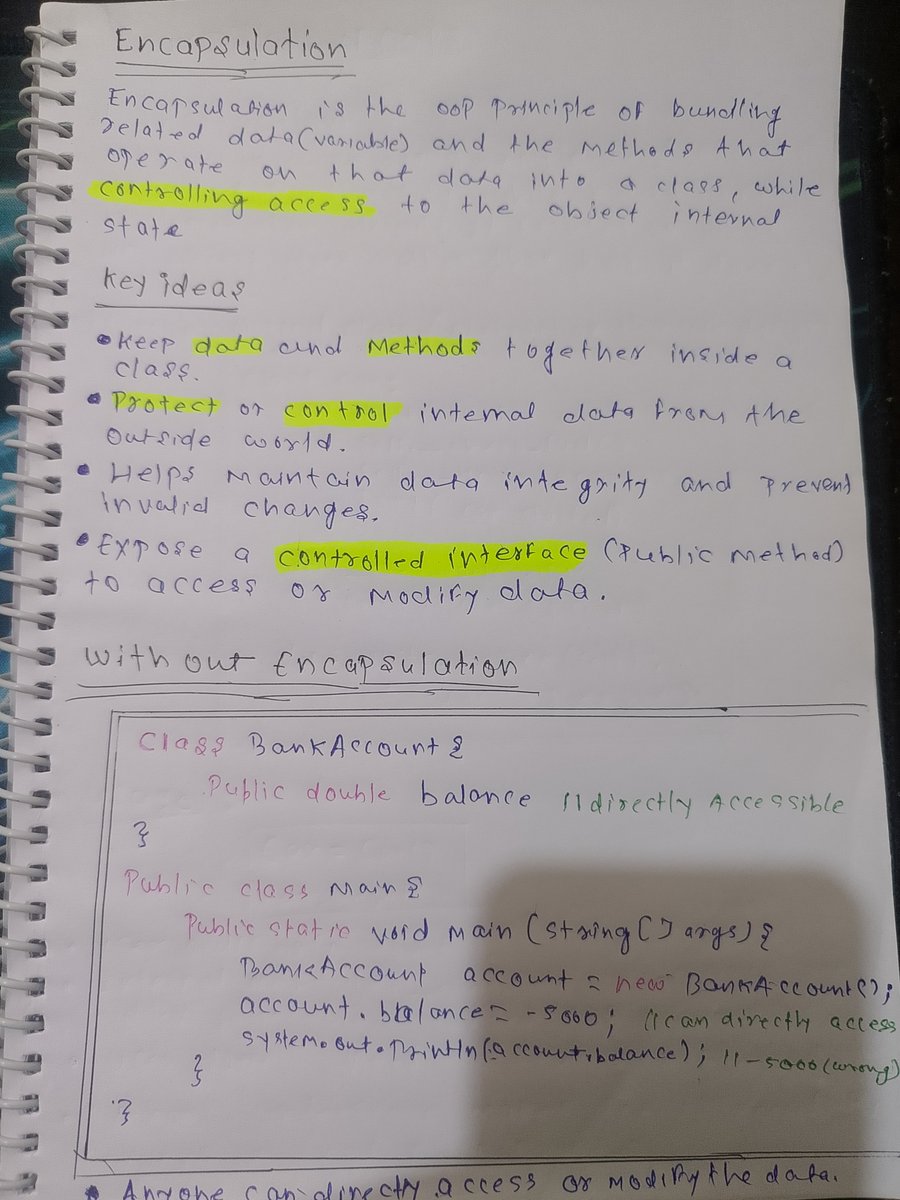 Encapsulation
Encapsulation is the OOP Principle of bundling
related data(variable) and the methods that
operate on that data into a class, while
controlling access to the object internal
state
Key ideas
• Keep data and Methods together inside a
class.
• Protect or control internal data from the
outside world.
• Helps maintain data integrity and prevent
invalid changes.
• Expose a controlled interface (Public Method)
to access or modify data.
Without Encapsulation
Class BankAccount {
Public double balance //directly Accessible
}
Public class Main {
Public static void main (string[] args) {
BankAccount account = new BankAccount();
account.balance = -5000; //can directly access
System.out.Println(account.balance); //-5000(wrong)
}
}
• Anyone can directly access or modify the data.